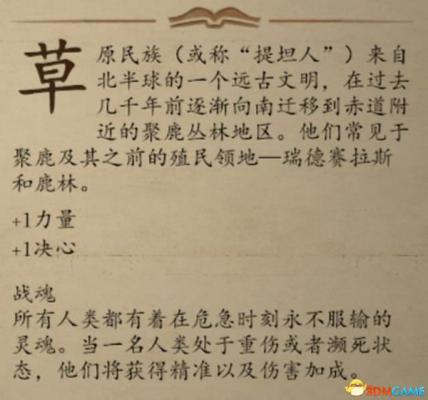 草原民族（或称“提坦人”）来自
北半球的一个远古文明，在过去
几千年前逐渐向南迁移到赤道附
近的聚鹿丛林地区。他们常见于
聚鹿及其之前的殖民领地—瑞德赛拉斯
和鹿林。
+1力量
+1决心
战魂
所有人类都有着在危急时刻永不服输的
灵魂。当一名人类处于重伤或者濒死状
态，他们将获得精准以及伤害加成。
3DMGAME